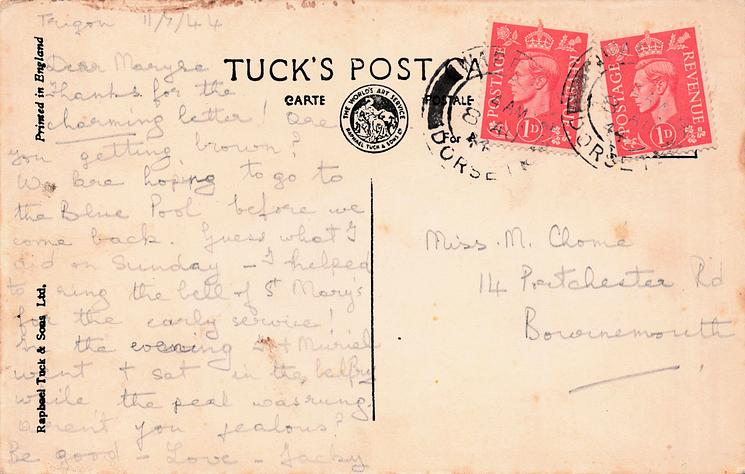 Trigon 11/7/44
Dear Maryse
Thanks for the
charming letter! Are
you getting brown?
We are hoping to go to
the Blue Pool before we
come back. Guess what I
did on Sunday - I helped
to ring the bell of St Mary's
for the early service!
In the evening I + Muriel
went + sat in the belfry
while the peal was rung
aren't you jealous?
Be good - Love - Jacky
Printed in England
Raphael Tuck & Sons Ltd.
TUCK'S POST
CARTE POSTALE
THE WORLD'S ART SERVICE
RAPHAEL TUCK & SONS LTD
For
POSTAGE REVENUE
1D
POSTAGE REVENUE
1D
DORSET
DORSET
Miss. M. Chomé
14 Portchester Rd
Bournemouth